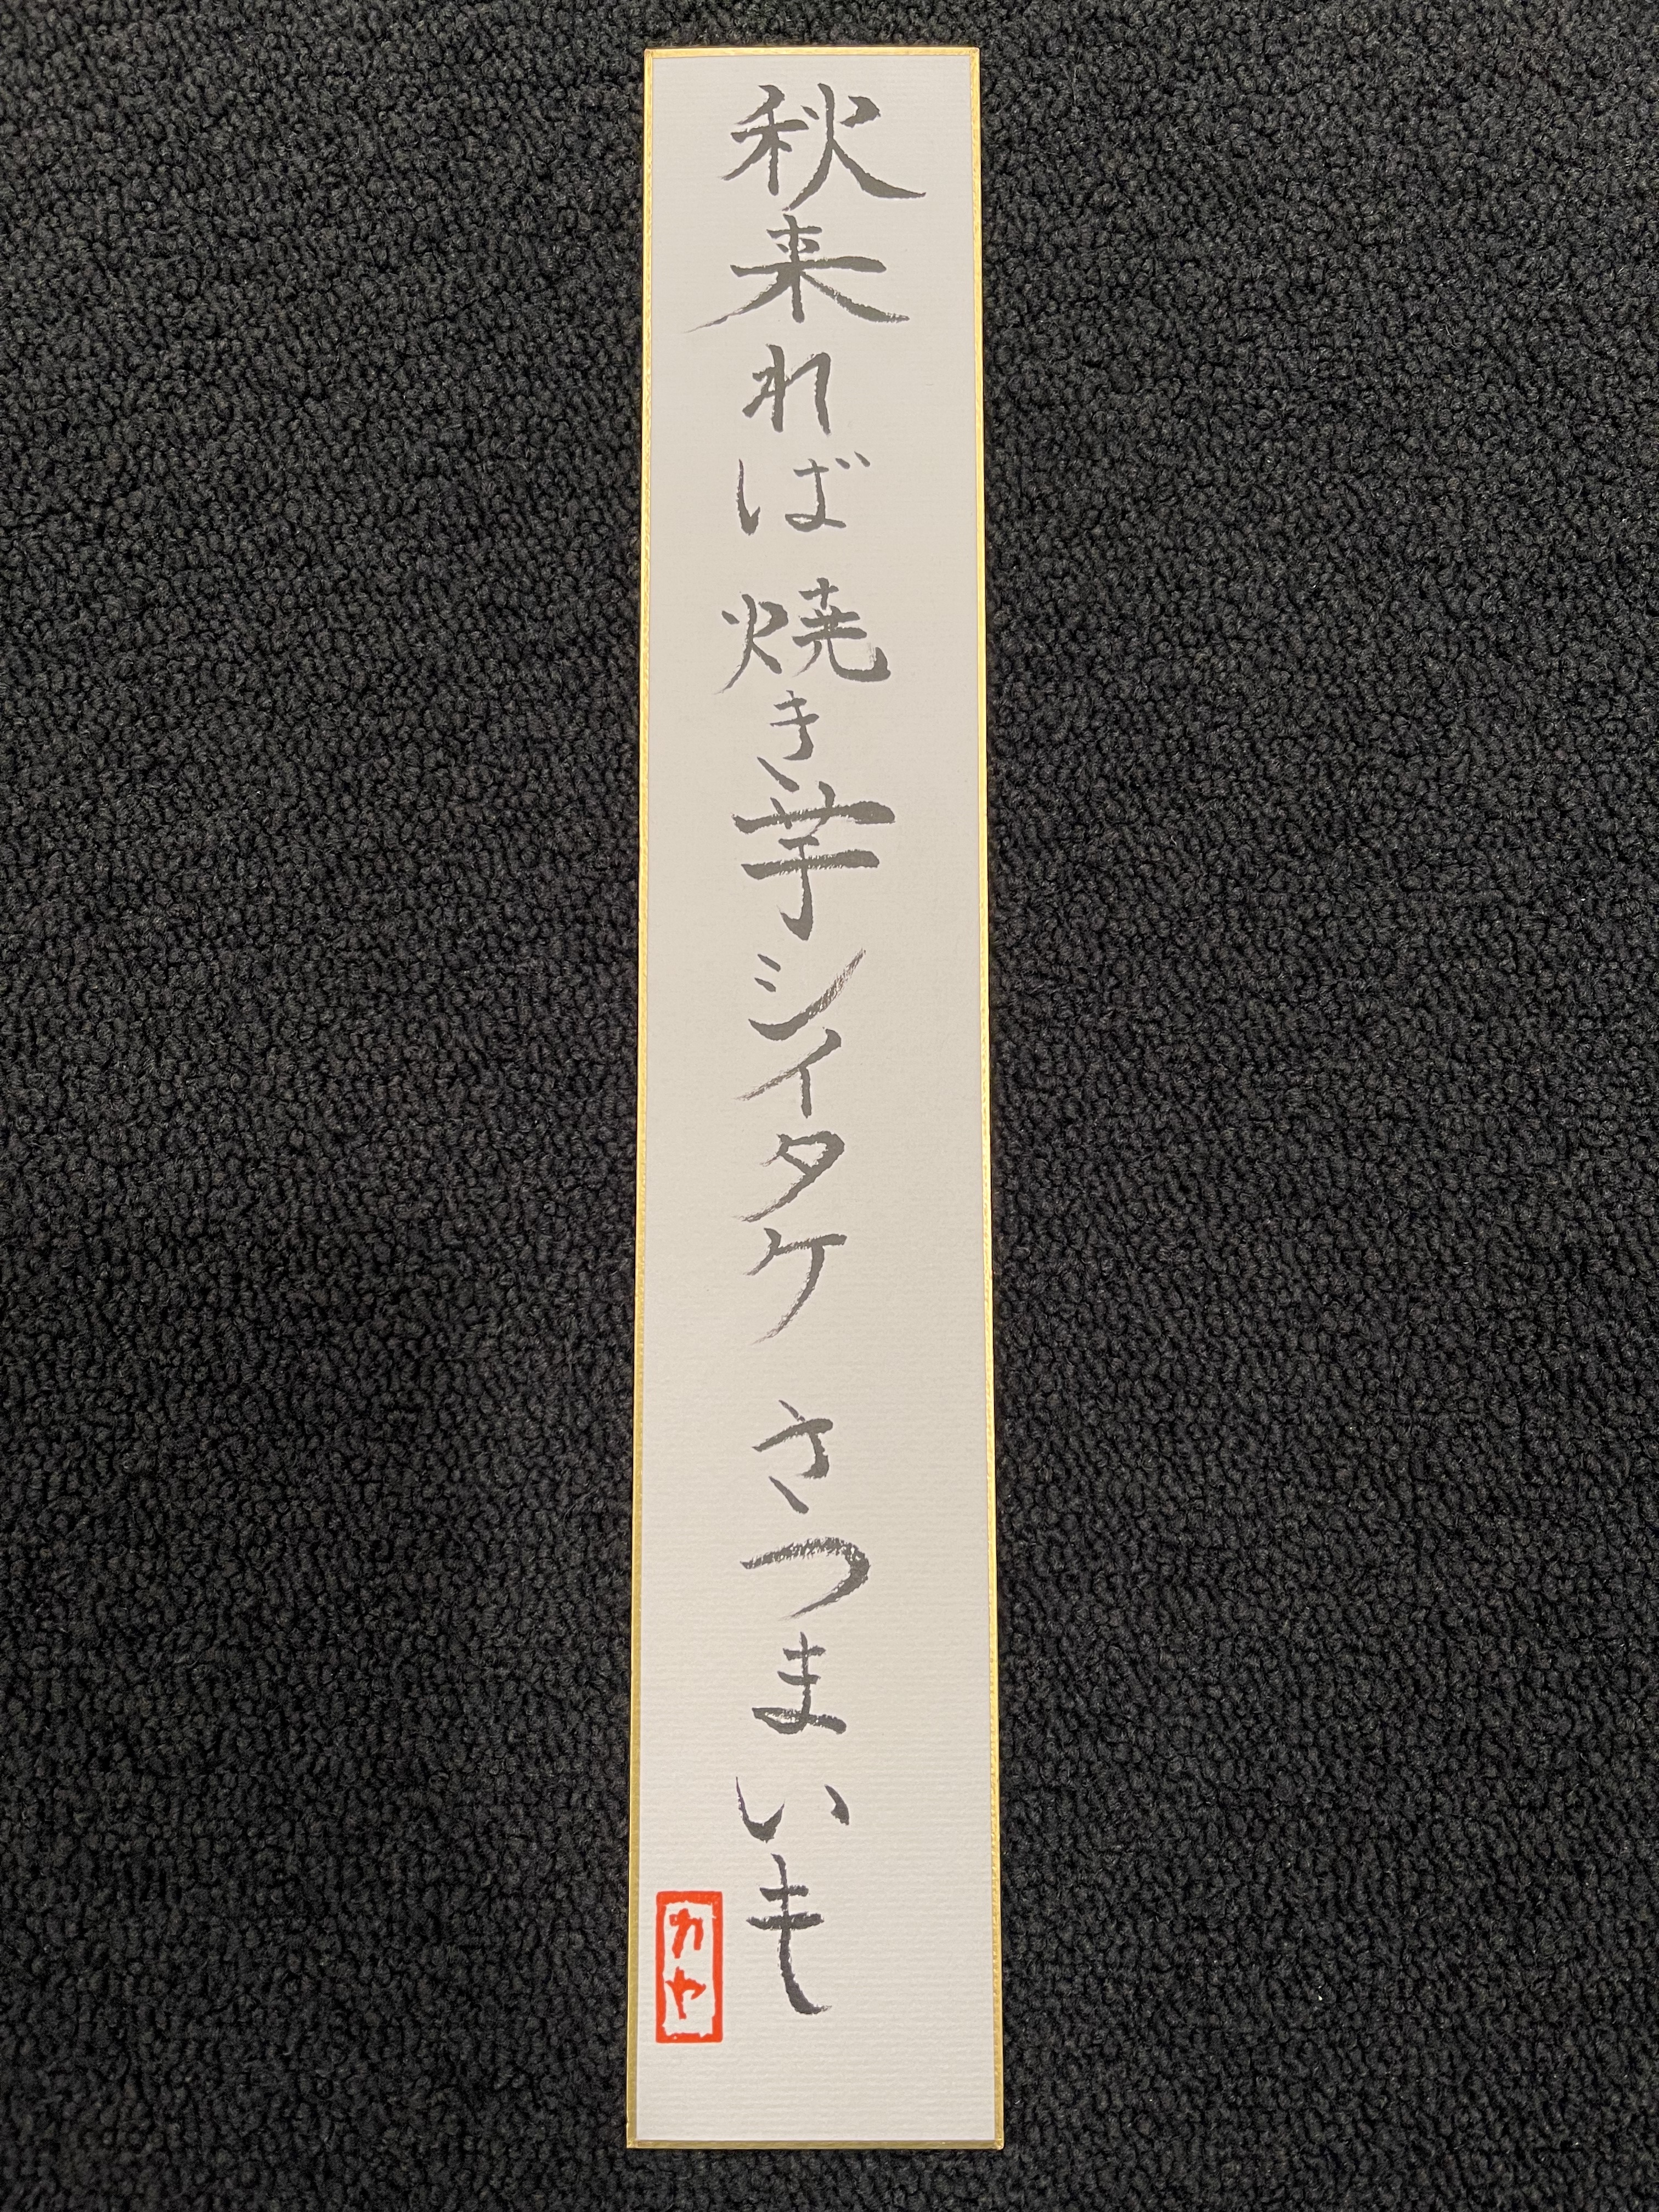 秋来れば 焼き芋シイタケ さつまいも
カヤ